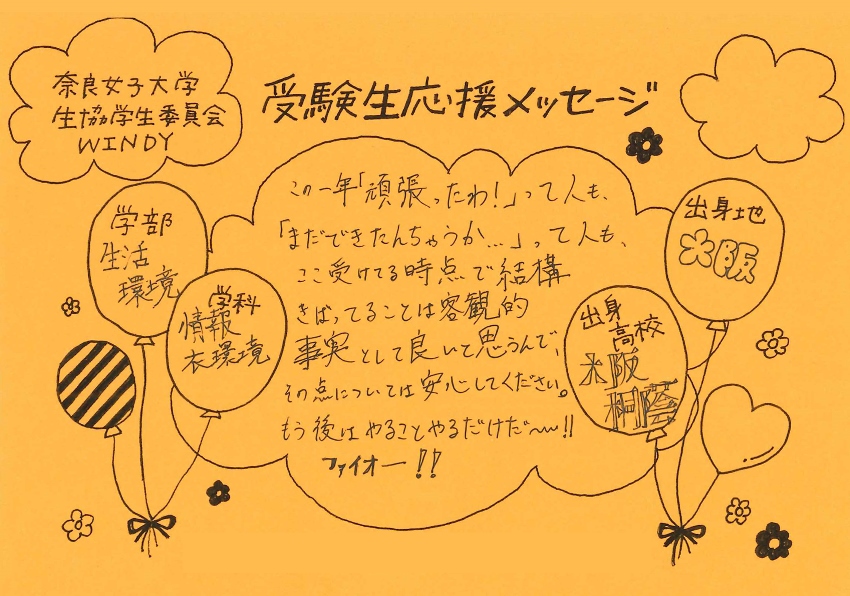 奈良女子大学
生協学生委員会
WINDY
受験生応援メッセージ
この一年「頑張ったわ!」って人も、
「まだできたんちゃうか…」って人も、
ここ受けてる時点で結構
きばってることは客観的
事実として良いと思うんで、
その点については安心してください。
もう後はやることやるだけだ〜!!
ファイオー!!
学部
生活
環境
学科
情報
衣環境
出身地
大阪
出身
高校
大阪
桐蔭